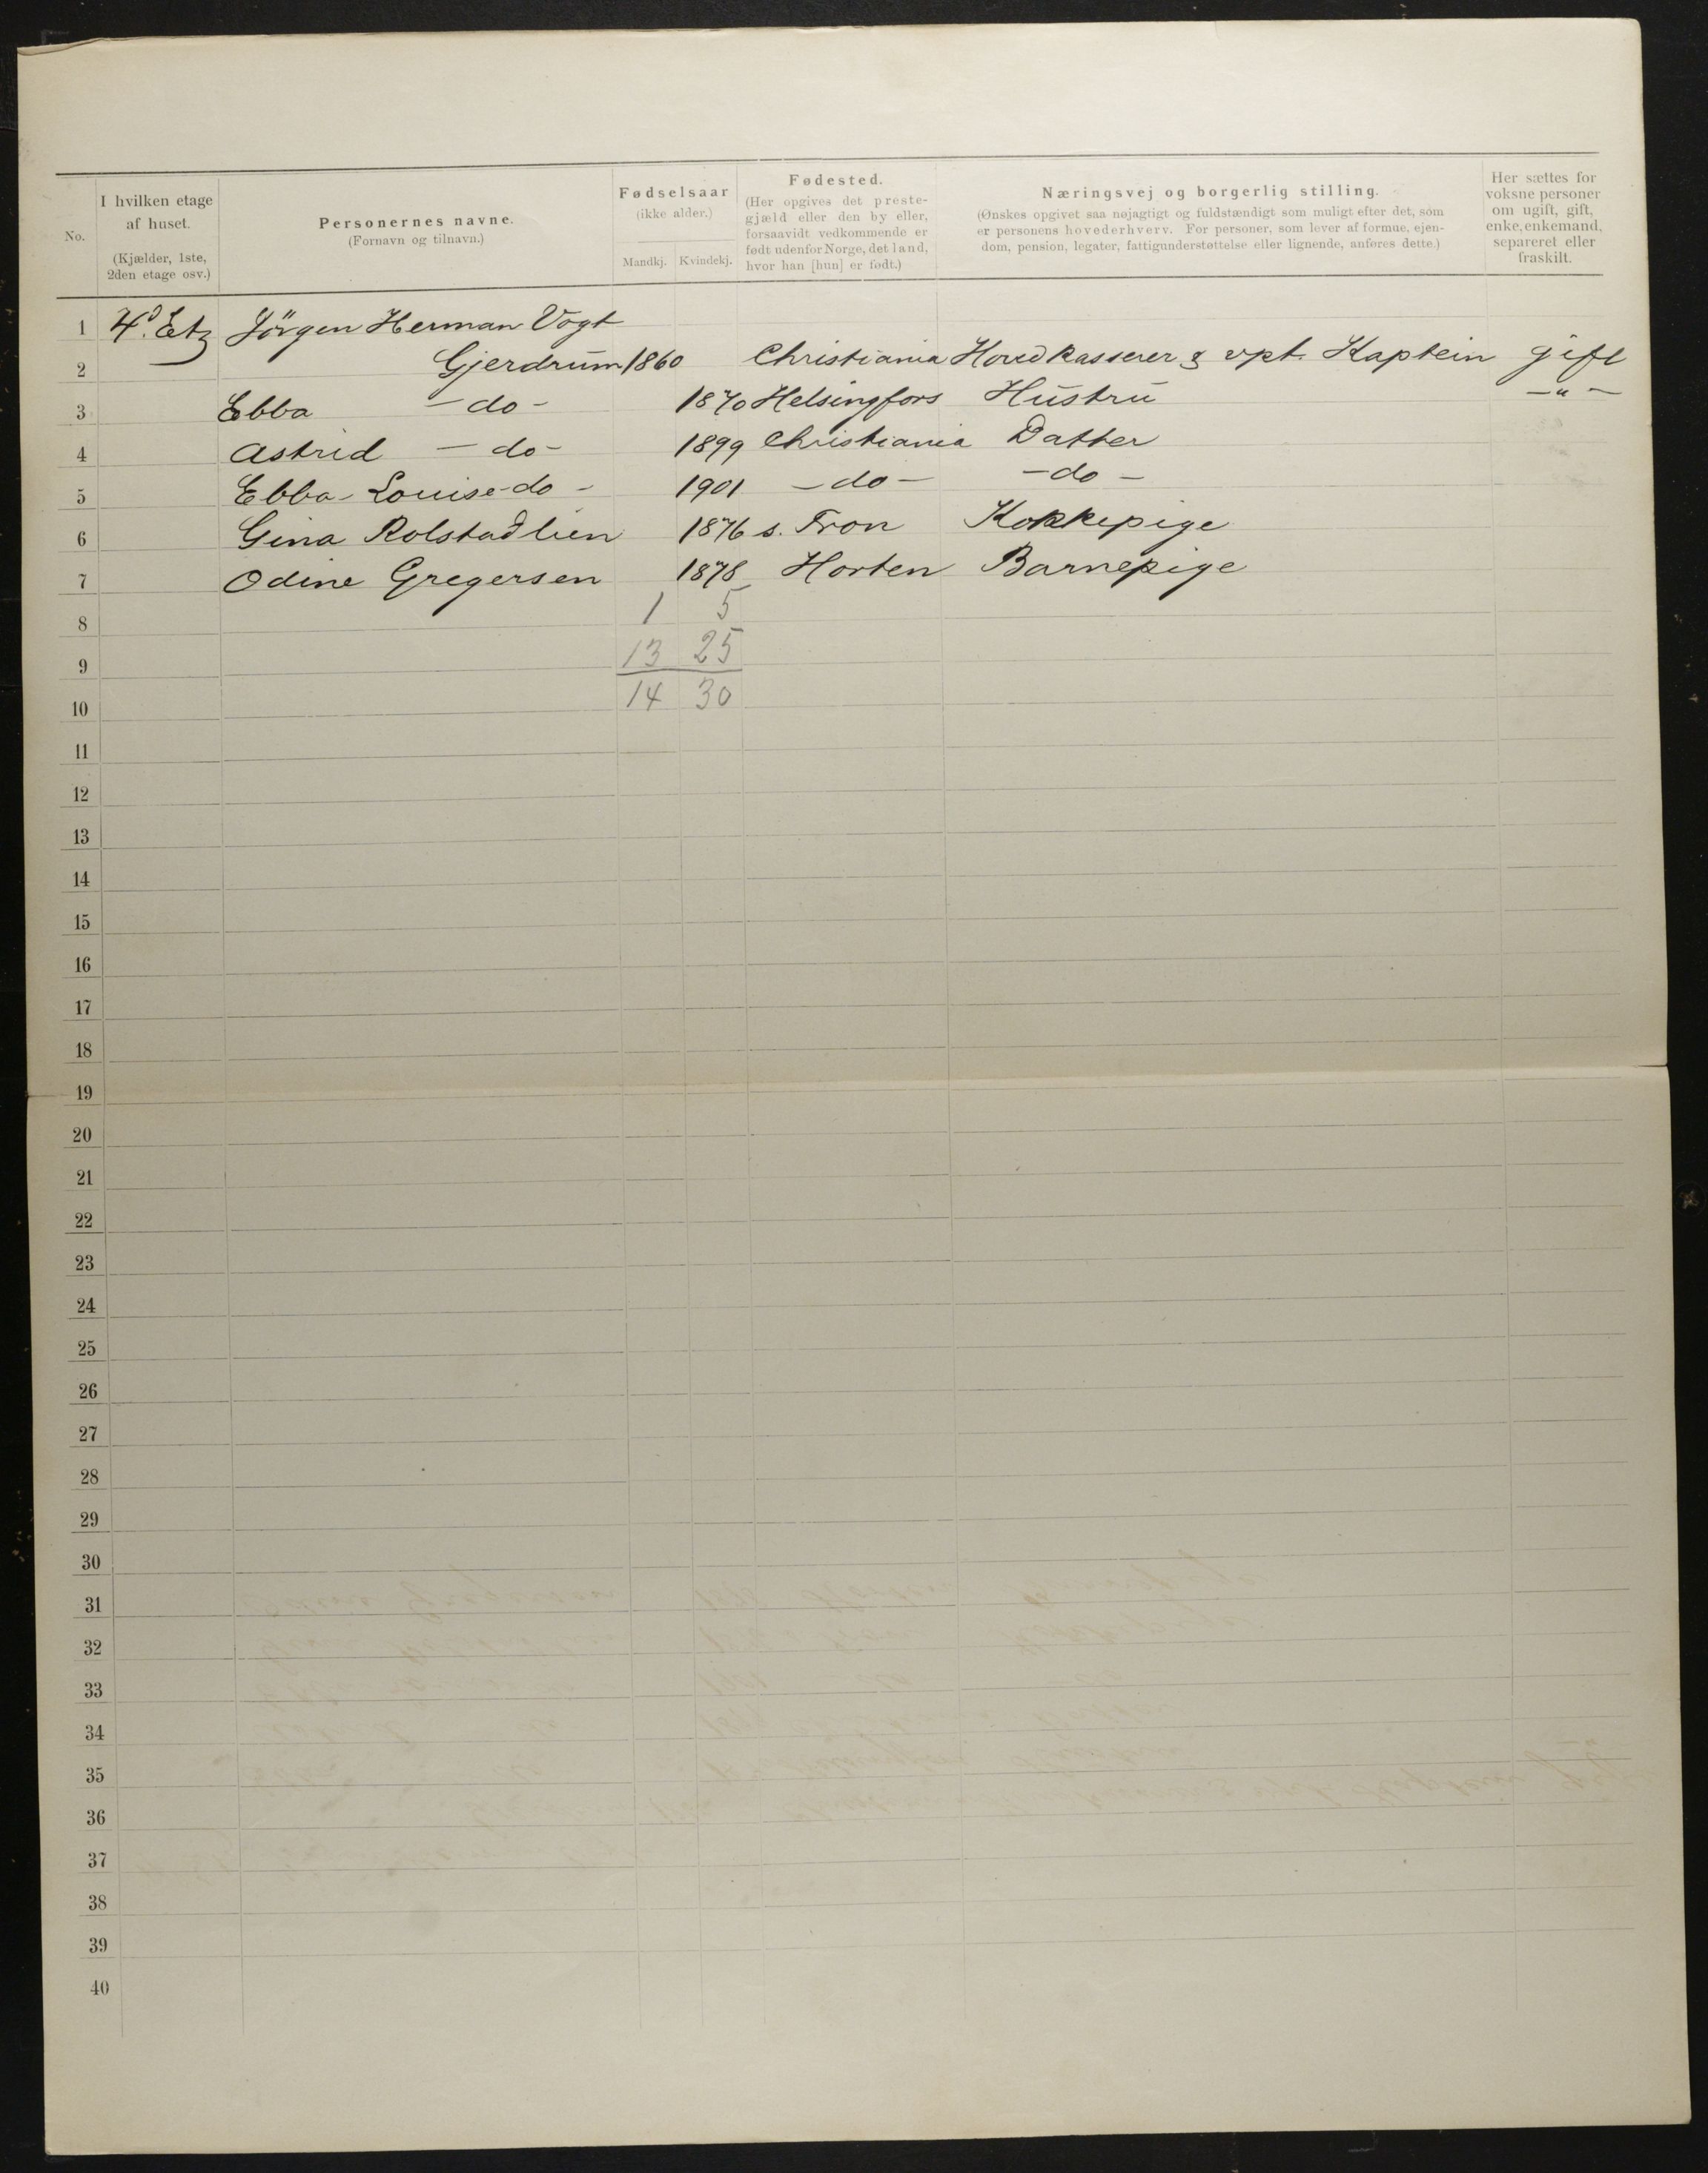 No.
I hvilken etage af huset. (Kjælder, 1ste, 2den etage osv.)
Personernes navne. (Fornavn og tilnavn.)
Fødselsaar (ikke alder.)
Mandkj. Kvindekj.
Fødested. (Her opgives det prestegjæld eller den by eller, forsaavidt vedkommende er født udenfor Norge, det land, hvor han [hun] er født.)
Næringsvej og borgerlig stilling. (Ønskes opgivet saa nøjagtigt og fuldstændigt som muligt efter det, som er personens hovederhverv. For personer, som lever af formue, ejendom, pension, legater, fattigunderstøttelse eller lignende, anføres dette.)
Her sættes for voksne personer om ugift, gift, enke, enkemand, separeret eller fraskilt.
1 4. Etg Jörgen Herman Vogt
2 Gjerdrum 1860 Christiania Hovedkasserer & vpt. Kaptein gift
3 Ebba - do - 1870 Helsingfors Hustru - " -
4 Astrid - do - 1899 Christiania Datter
5 Ebba-Louise - do - 1901 - do - - do -
6 Gina Rolstadlien 1876 s. Fron Kokkepige
7 Odine Gregersen 1878 Horten Barnepige
8 1 5
9 13 25
10 14 30
11
12
13
14
15
16
17
18
19
20
21
22
23
24
25
26
27
28
29
30
31
32
33
34
35
36
37
38
39
40